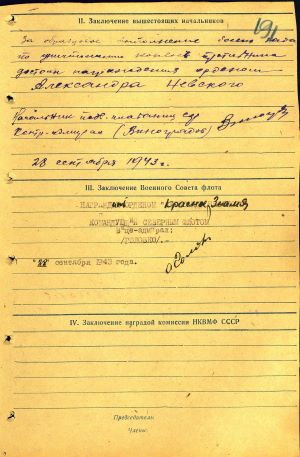 191
II. Заключение вышестоящих начальников
За образцовое выполнение боевых
по уничтожению противника
достоин награждения орденом
Александра Невского
Начальник подв. плавания СФ
Контр-адмирал (Виноградов)
23 сентября 1943 г.
III. Заключение Военного Совета флота
НАГРАДИТЬ ОРДЕНОМ "Красное Знамя
КОМАНДУЮЩИЙ СЕВЕРНЫМ ФЛОТОМ
Вице-адмирал:
/ГОЛОВКО/.-
сентября 1943 года.
IV. Заключение наградной комиссии НКВМФ СССР
Председатель
Члены: